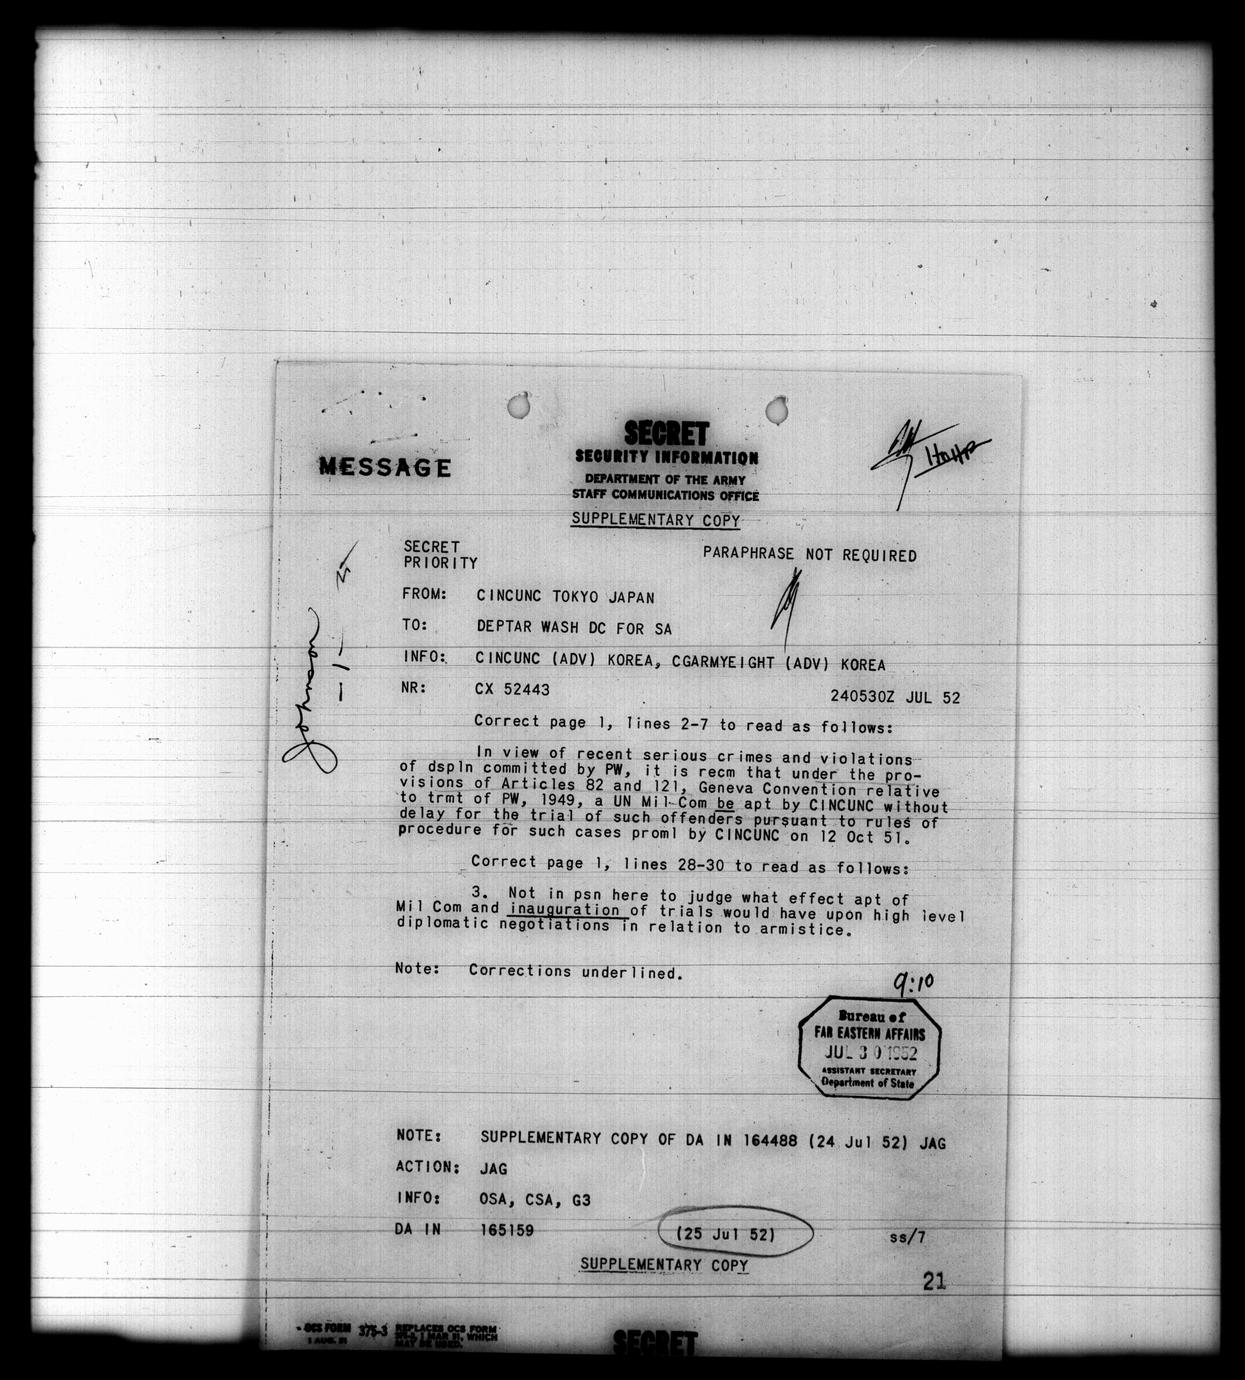 SECRET
SECURITY INFORMATION
MESSAGE
DEPARTMENT OF THE ARMY
STAFF COMMUNICATIONS OFFICE
SUPPLEMENTARY COPY
SECRET
PARAPHRASE NOT REQUIRED
PRIORITY
FROM: CINCUNC TOKYO JAPAN
TO: DEPTAR WASH DC FOR SA
INFO: CINCUNC (ADV) KOREA, CGARMYEIGHT (ADV) KOREA
NR: CX 52443 240530Z JUL 52
Johnson
-1-
Correct page 1, lines 2-7 to read as follows:
In view of recent serious crimes and violations
of dspln committed by PW, it is recm that under the pro-
visions of Articles 82 and 121, Geneva Convention relative
to trmt of PW, 1949, a UN Mil Com be apt by CINCUNC without
delay for the trial of such offenders pursuant to rules of
procedure for such cases proml by CINCUNC on 12 Oct 51.
Correct page 1, lines 28-30 to read as follows:
3. Not in psn here to judge what effect apt of
Mil Com and inauguration of trials would have upon high level
diplomatic negotiations in relation to armistice.
Note: Corrections underlined.
9:10
Bureau of
FAR EASTERN AFFAIRS
JUL 30 1952
ASSISTANT SECRETARY
Department of State
NOTE: SUPPLEMENTARY COPY OF DA IN 164488 (24 Jul 52) JAG
ACTION: JAG
INFO: OSA, CSA, G3
DA IN 165159 (25 Jul 52) ss/7
SUPPLEMENTARY COPY
21
OCS FORM 375-3 REPLACES OCS FORM
1 AUG. 51 375-3, 1 MAR 51, WHICH
MAY BE USED.
SECRET